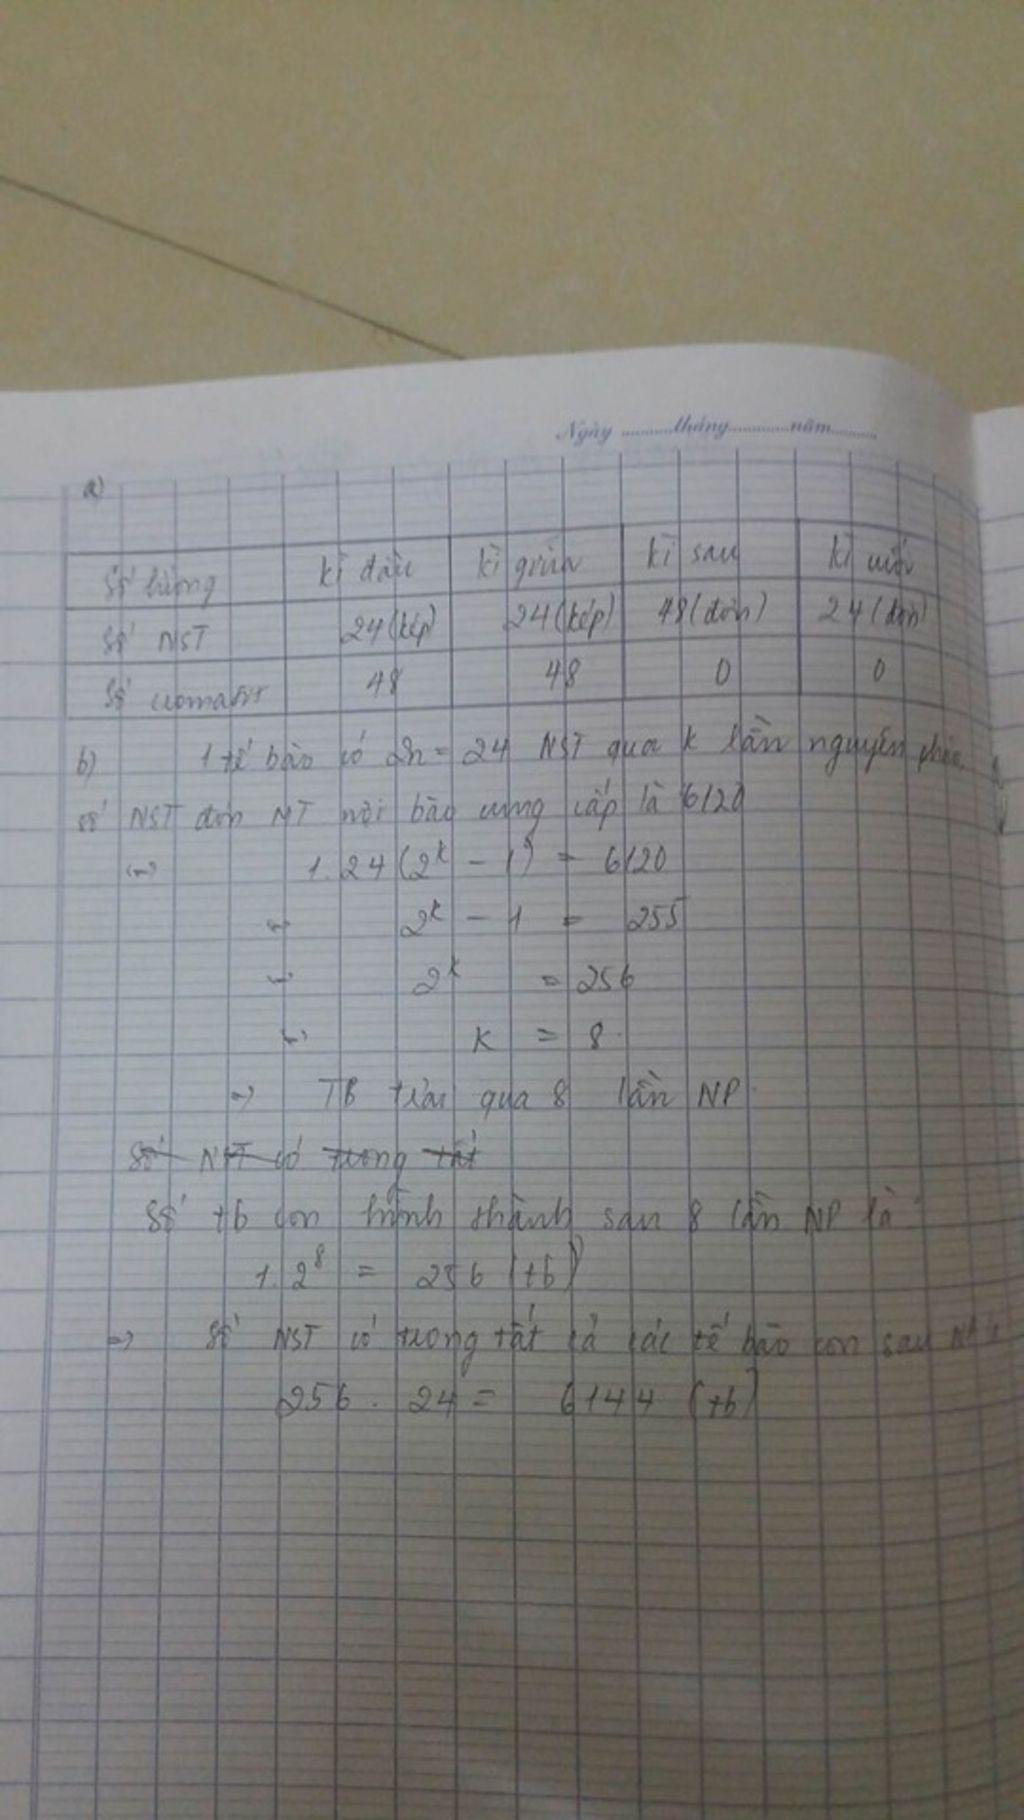 Ngày ..........tháng............năm.........
a)
Số lượng kì đầu kì giữa kì sau kì cuối
Số NST 24 (kép) 24 (kép) 48 (đơn) 24 (đơn)
Số cromatit 48 48 0 0
b) 1 tế bào có 2n = 24 NST qua k lần nguyên phân
số NST đơn MT nội bào cung cấp là 6120
<=> 1. 24 (2^k - 1) = 6120
<=> 2^k - 1 = 255
<=> 2^k = 256
<=> k = 8
=> TB trải qua 8 lần NP
Số NST có trong tất
Số tb con hình thành sau 8 lần NP là
1. 2^8 = 256 (tb)
=> Số NST có trong tất cả các tế bào con sau NP
256 . 24 = 6144 (tb)